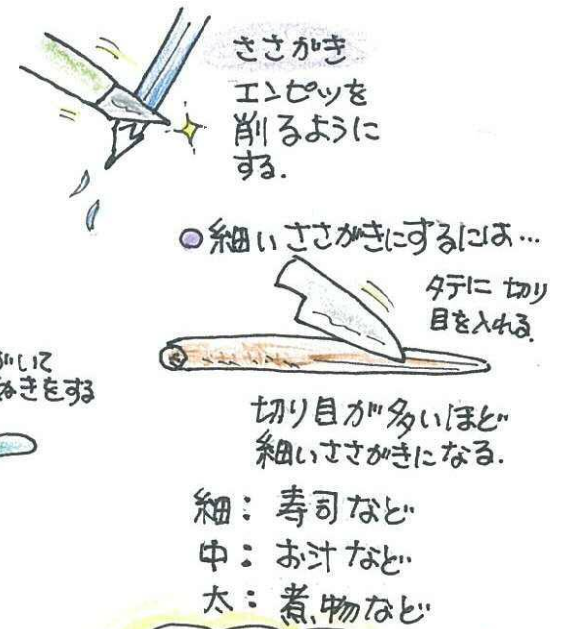 ささがき
エンピツを
削るように
する.
細いささがきにするには…
タテに切り
目を入れる.
いて
きをする
切り目が多いほど
細いささがきになる.
細：寿司など
中：お汁など
太：煮物など